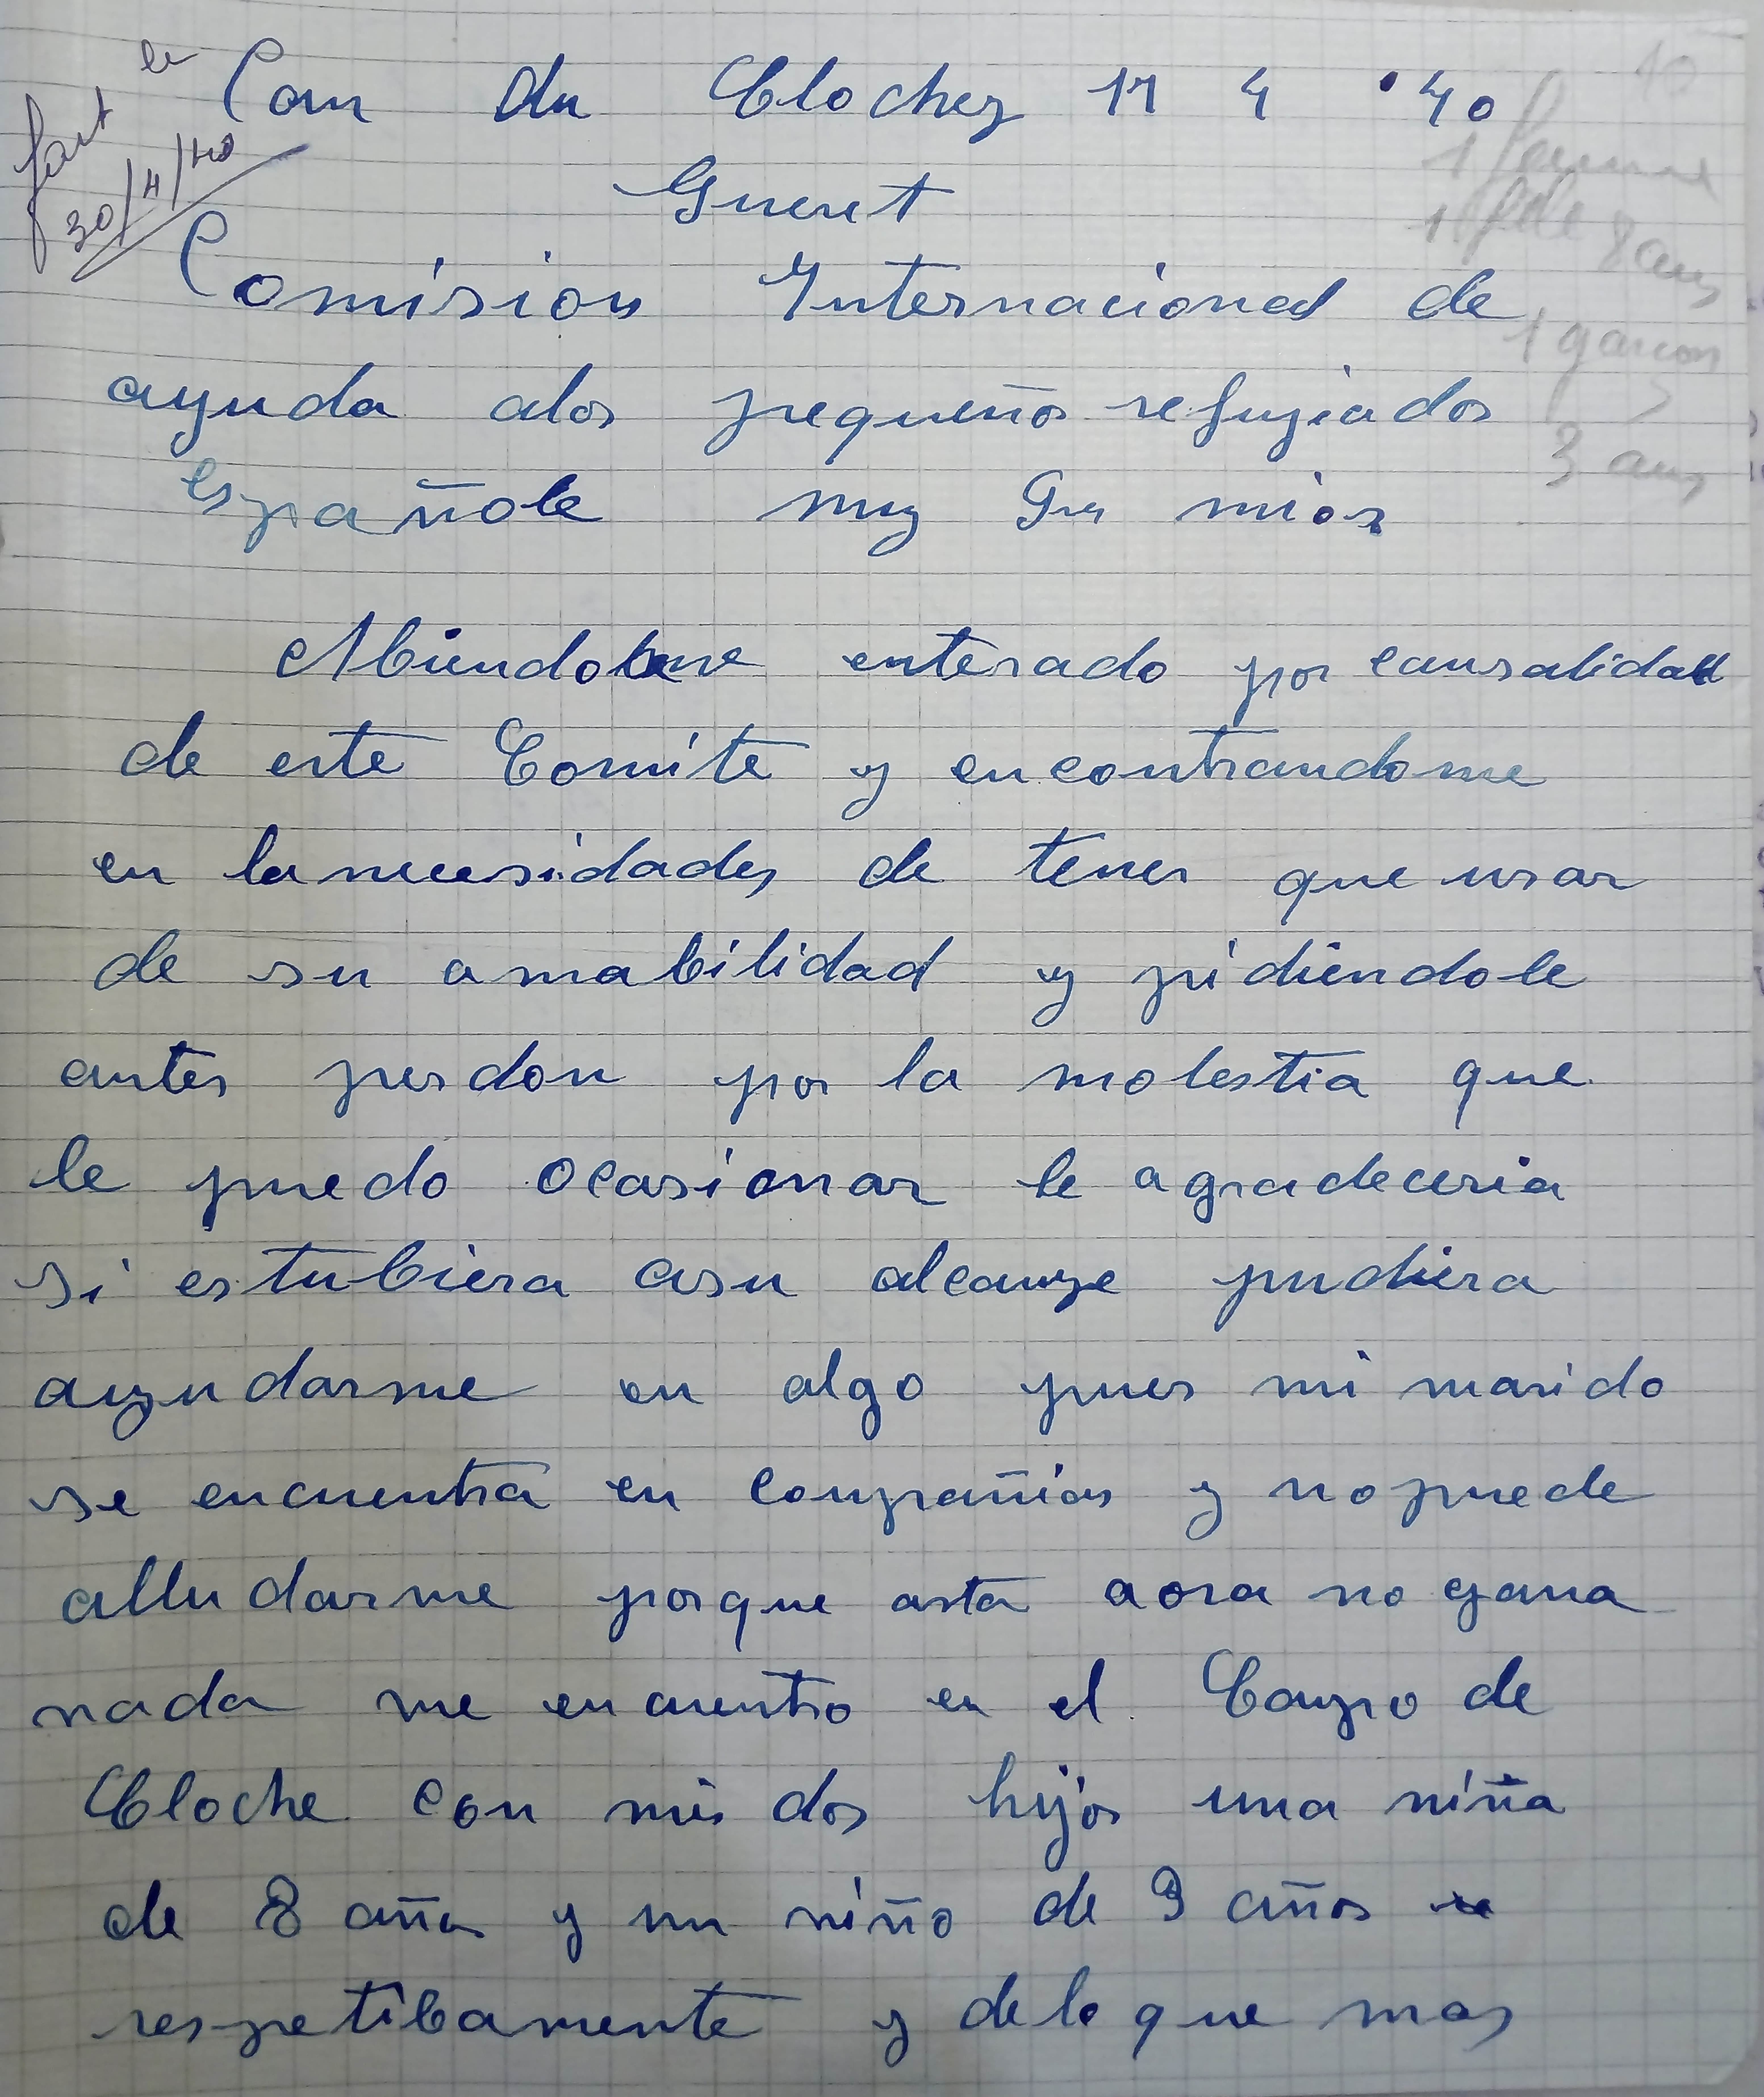 fait le
30/4/40
10
1 femme
1 fille 8 ans
1 garçon
3 ans
Cam du Clocher 17 4 40
Gueret
Comision Internacional de
ayuda alos pequeños refugiados
españole muy Srs mios
Abiendome enterado por causalidad
de este Comite y encontrandome
en la necesidades de tener que usar
de su amabilidad y pidiendole
antes perdon por la molestia que
le puedo ocasionar le agradeceria
si estubiera asu alcanze pudiera
ayudarme en algo pues mi marido
se encuentra en compañias y no puede
alludarme porque asta aora no gana
nada me encuentro en el Campo de
Cloche con mis dos hijos una niña
de 8 años y un niño de 3 años
respetibamente y delo que mas